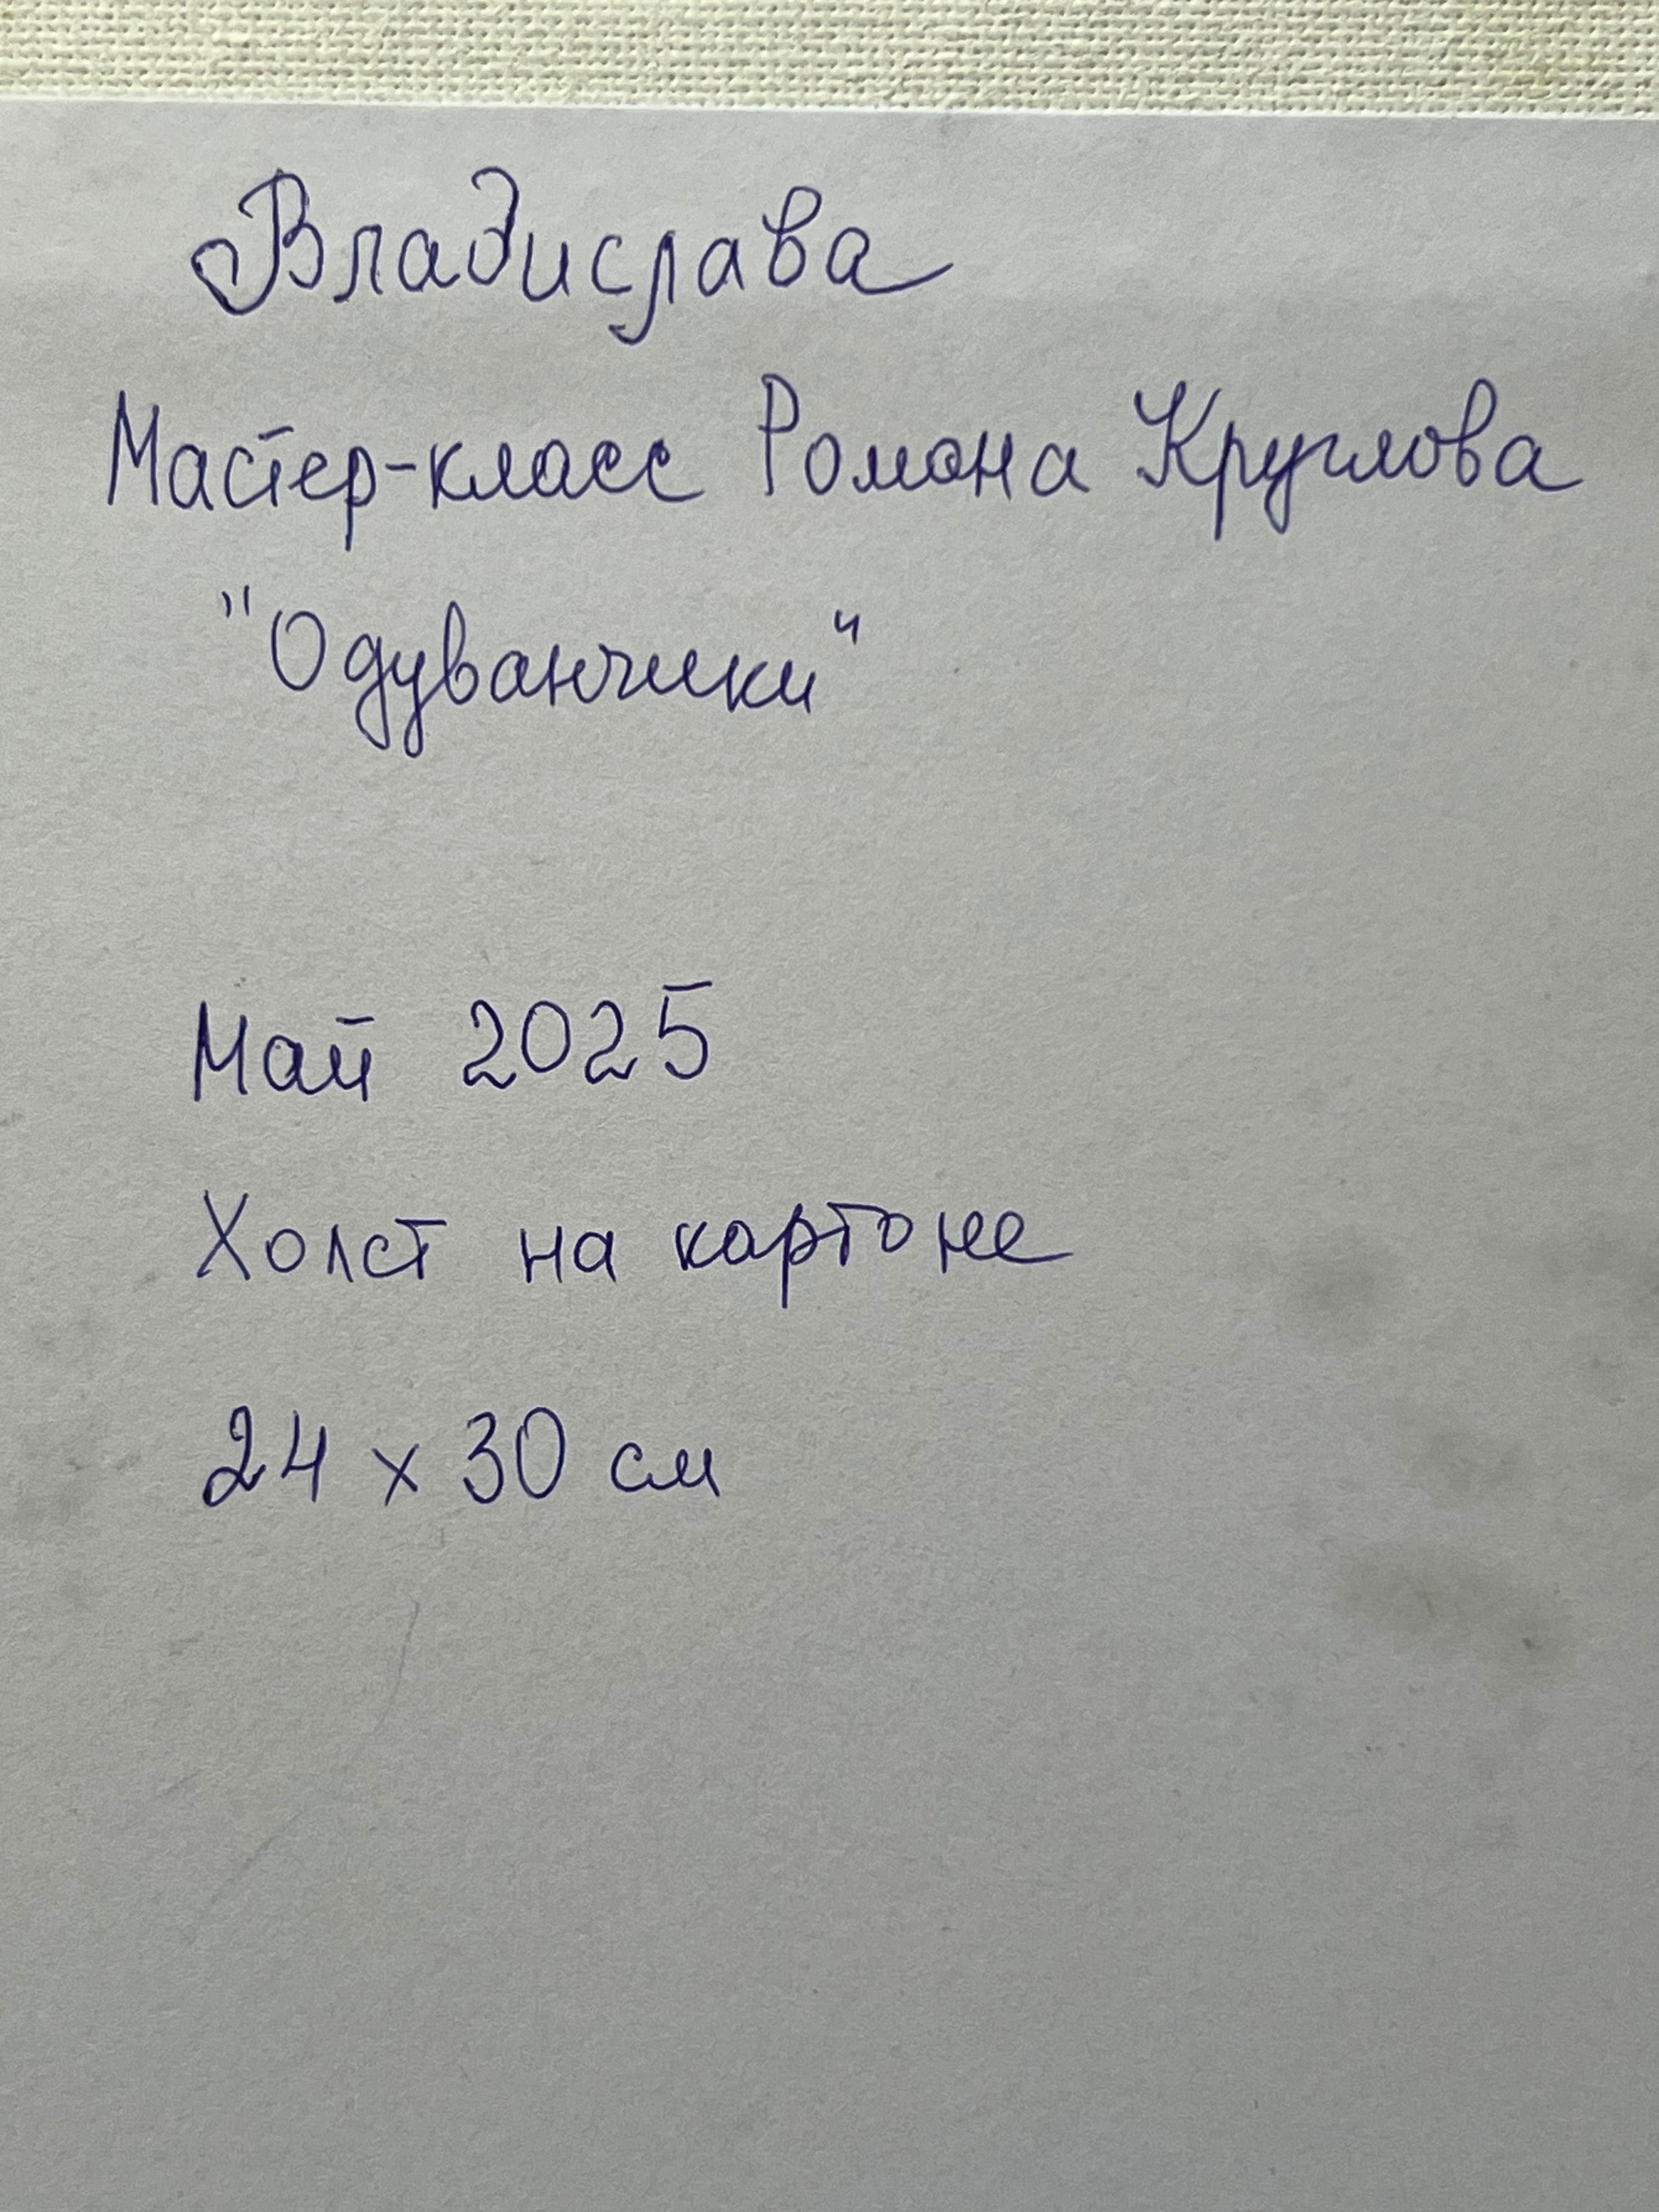 Владислава
Мастер-класс Романа Круглова
"Одуванчики"
Май 2025
Холст на картоне
24 х 30 см